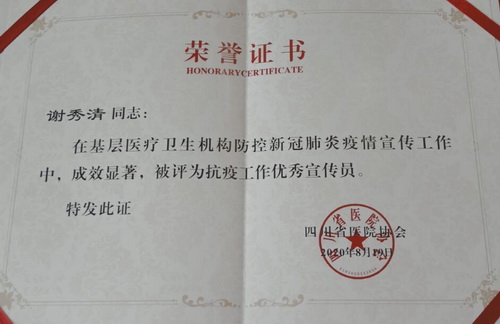 荣誉证书
HONORARYCERTIFICATE
谢秀清 同志：
在基层医疗卫生机构防控新冠肺炎疫情宣传工作
中，成效显著，被评为抗疫工作优秀宣传员。
特发此证
四川省医院协会
四川省医院协会
2020年8月19日